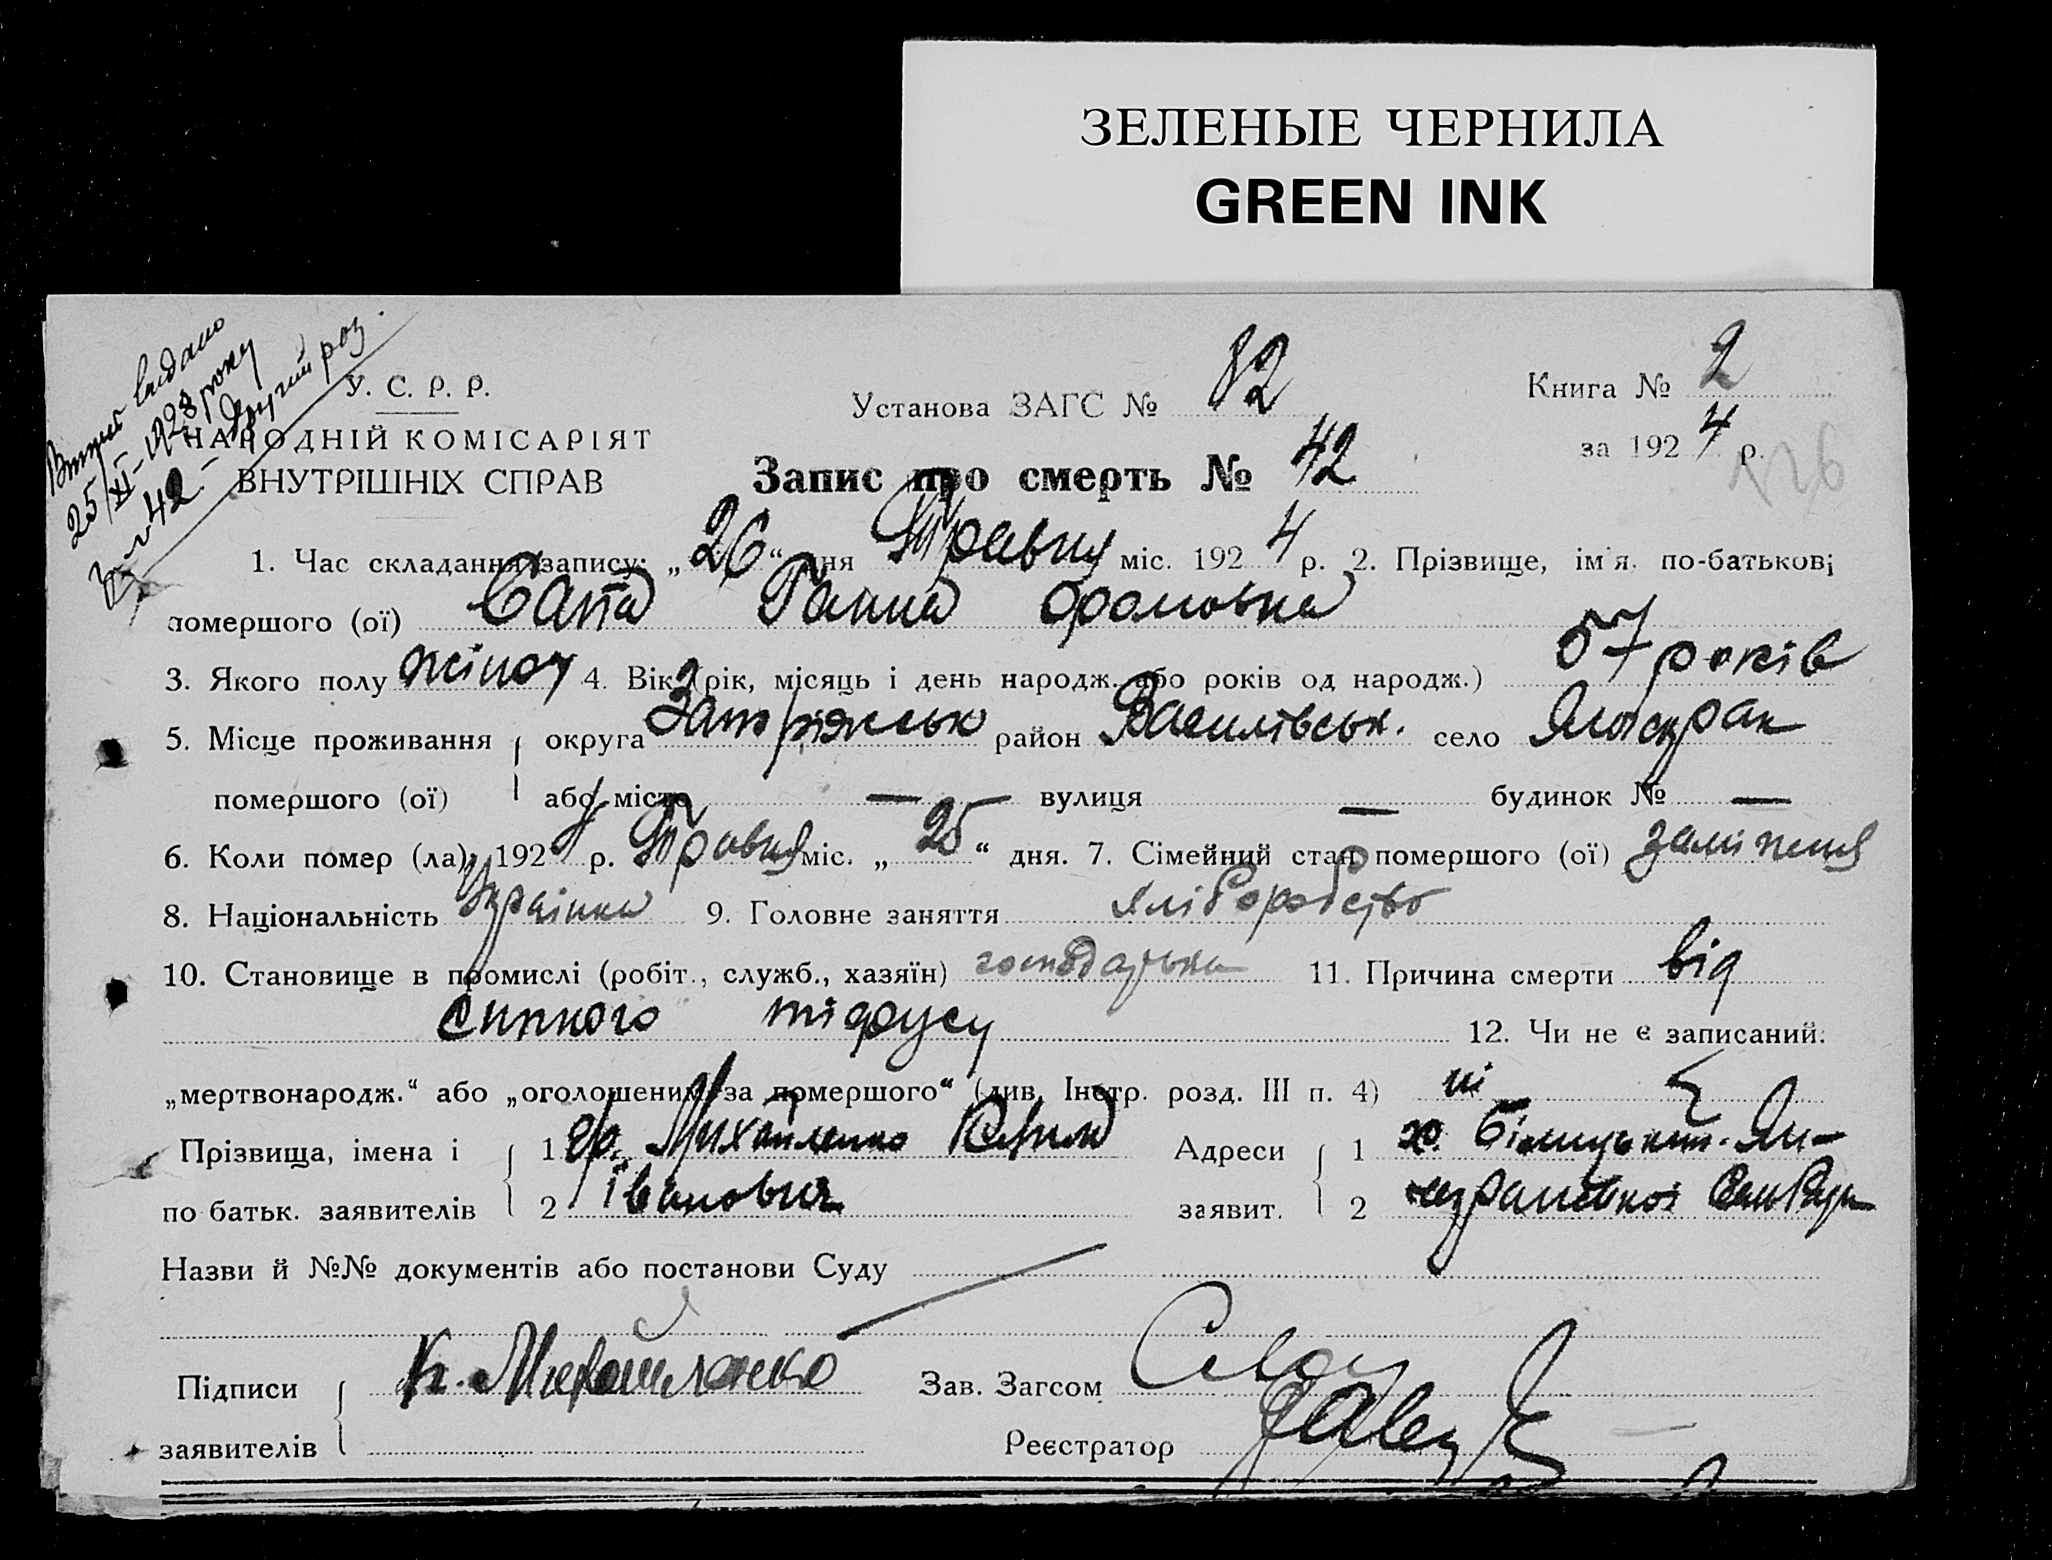 ЗЕЛЕНЫЕ ЧЕРНИЛА
GREEN INK
Випис видано
25/XI-1928 року
42 другий роз.
У. С. Р. Р.
НАРОДНІЙ КОМІСАРІЯТ
ВНУТРІШНІХ СПРАВ
Установа ЗАГС № 82
Книга № 2
за 1924 р.
Запис про смерть № 42
1. Час складання запису: „26“ дня Травня міс. 1924 р. 2. Прізвище, ім'я, по-батькові
помершого (ої) Сапа Ганна
3. Якого полу жіноч 4. Вік (рік, місяць і день народж. або років од народж.) 57 років
5. Місце проживання округа Запоріжськ район Василівськ. село
помершого (ої) або місто — вулиця — будинок № —
6. Коли помер (ла), 1924 р. Травня міс. „25“ дня. 7. Сімейний стан помершого (ої) заміжня
8. Національність Українка 9. Головне заняття хліборобство
10. Становище в промислі (робіт., служб., хазяїн) господарька 11. Причина смерти від
сипного тіфусу 12. Чи не є записаний:
„мертвонародж.“ або „оголошеним за помершого“ (див. Інстр. розд. III п. 4) ні
Прізвища, імена і 1 гр. Михайленко Адреси 1 х.
по батьк. заявителів 2 Іванович заявит. 2
Назви й №№ документів або постанови Суду
Підписи К. Михайленко Зав. Загсом
заявителів Реєстратор